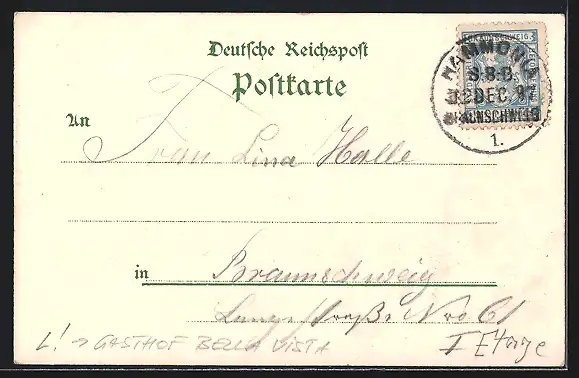 Deutsche Reichspost
Postkarte
HAMMONIA
S.B.D.
12 DEC. 97
BRAUNSCHWEIG
1.
An
Frau Lina Halle
in
Braunschweig
Lange straße Nro 61
I Etage
L! → GASTHOF BELLA VISTA